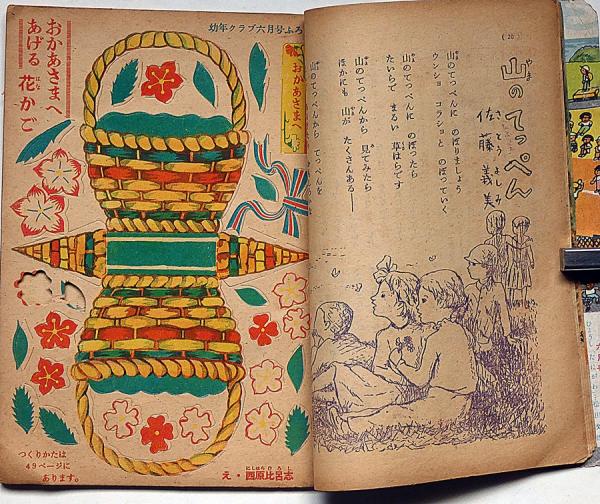 幼年クラブ六月号ふろ
おかあさまへ
あげる 花かご
はな
おかあさま
つくりかたは
49ページに
あります。
にしはらひろし
え・西原比呂志
(20)
山のてっぺん
やま
さとうよしみ
佐藤義美
山のてっぺんに のぼりましょう
ウンショ コラショと のぼっていく
山のてっぺんに のぼったら
たいらで まるい 草はらです
山のてっぺんから 見てみたら
ほかにも 山が たくさんある――
山のてっぺんから てっぺんを